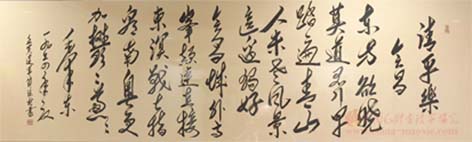 清平樂
会昌
东方欲晓
莫道君行早
踏遍青山
人未老风景
這邊独好
会昌城外高
峯颠连直接
東溟战士指
看南粤更
毛泽东
一九三四年